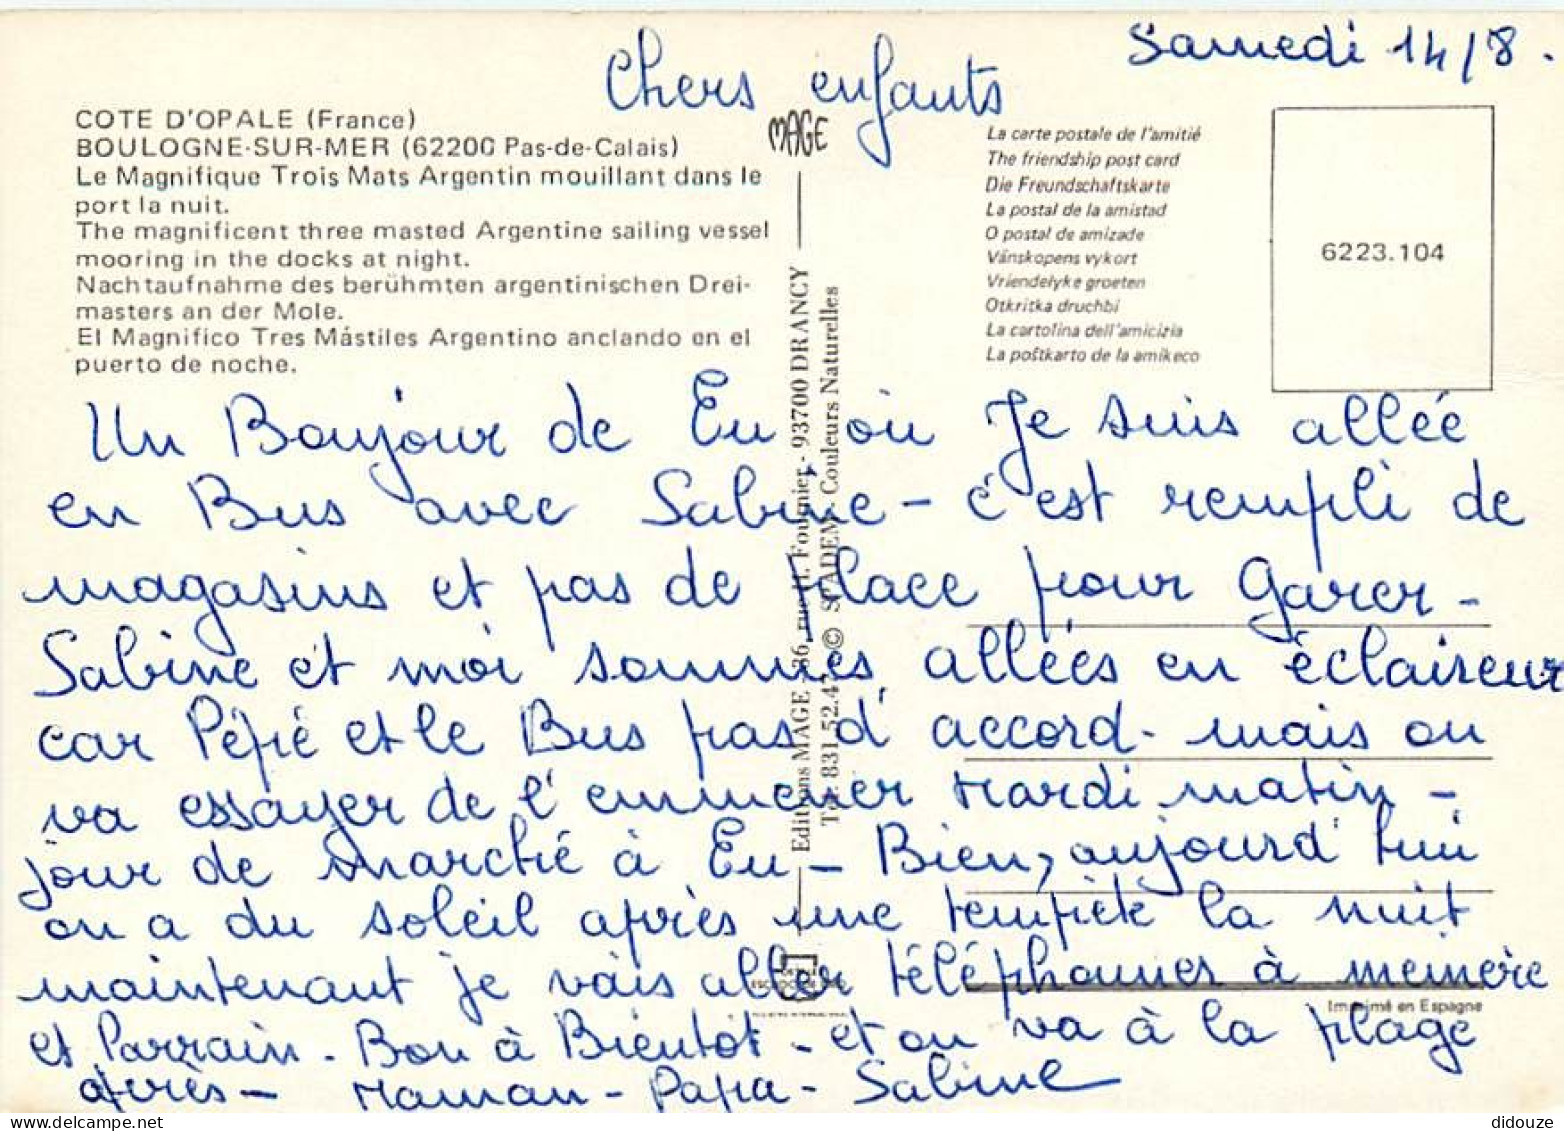 Samedi 14/8.
Chers enfants
COTE D'OPALE (France)
BOULOGNE-SUR-MER (62200 Pas-de-Calais)
Le Magnifique Trois Mats Argentin mouillant dans le
port la nuit.
The magnificent three masted Argentine sailing vessel
mooring in the docks at night.
Nachtaufnahme des berühmten argentinischen Drei-
masters an der Mole.
El Magnifico Tres Mástiles Argentino anclando en el
puerto de noche.
MAGE
Editions MAGE - 36, rue H. Fournier - 93700 DRANCY
© SPADEM - Couleurs Naturelles
La carte postale de l'amitié
The friendship post card
Die Freundschaftskarte
La postal de la amistad
O postal de amizade
Vänskopens vykort
Vriendelyke groeten
Otkritka druchbi
La cartolina dell'amicizia
La poŝtkarto de la amikeco
6223.104
Un Bonjour de Eu où Je suis allée
en Bus avec Sabine - c'est rempli de
magasins et pas de place pour Garer -
Sabine et moi sommes allées en éclaireur
car Pépé et le Bus pas d'accord - mais on
va essayer de l'emmener Mardi matin -
jour de marché à Eu - Bien, aujourd'hui
on a du soleil après une tempête la nuit
maintenant je vais aller téléphoner à mémère
et Parrain - Bon à Bientôt - et on va à la plage
après - Maman - Papa - Sabine
Imprimé en Espagne
didouze